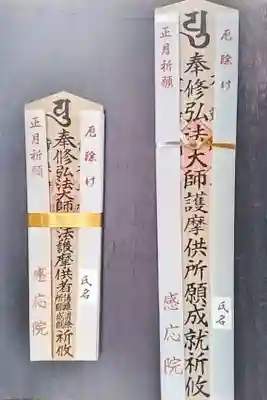 厄除け
奉修弘法大師護摩供所願成就祈攸
正月祈願
氏名
感応院
厄除け
奉修弘法大師
法護摩供者
祈攸
正月祈願
氏名
感応院